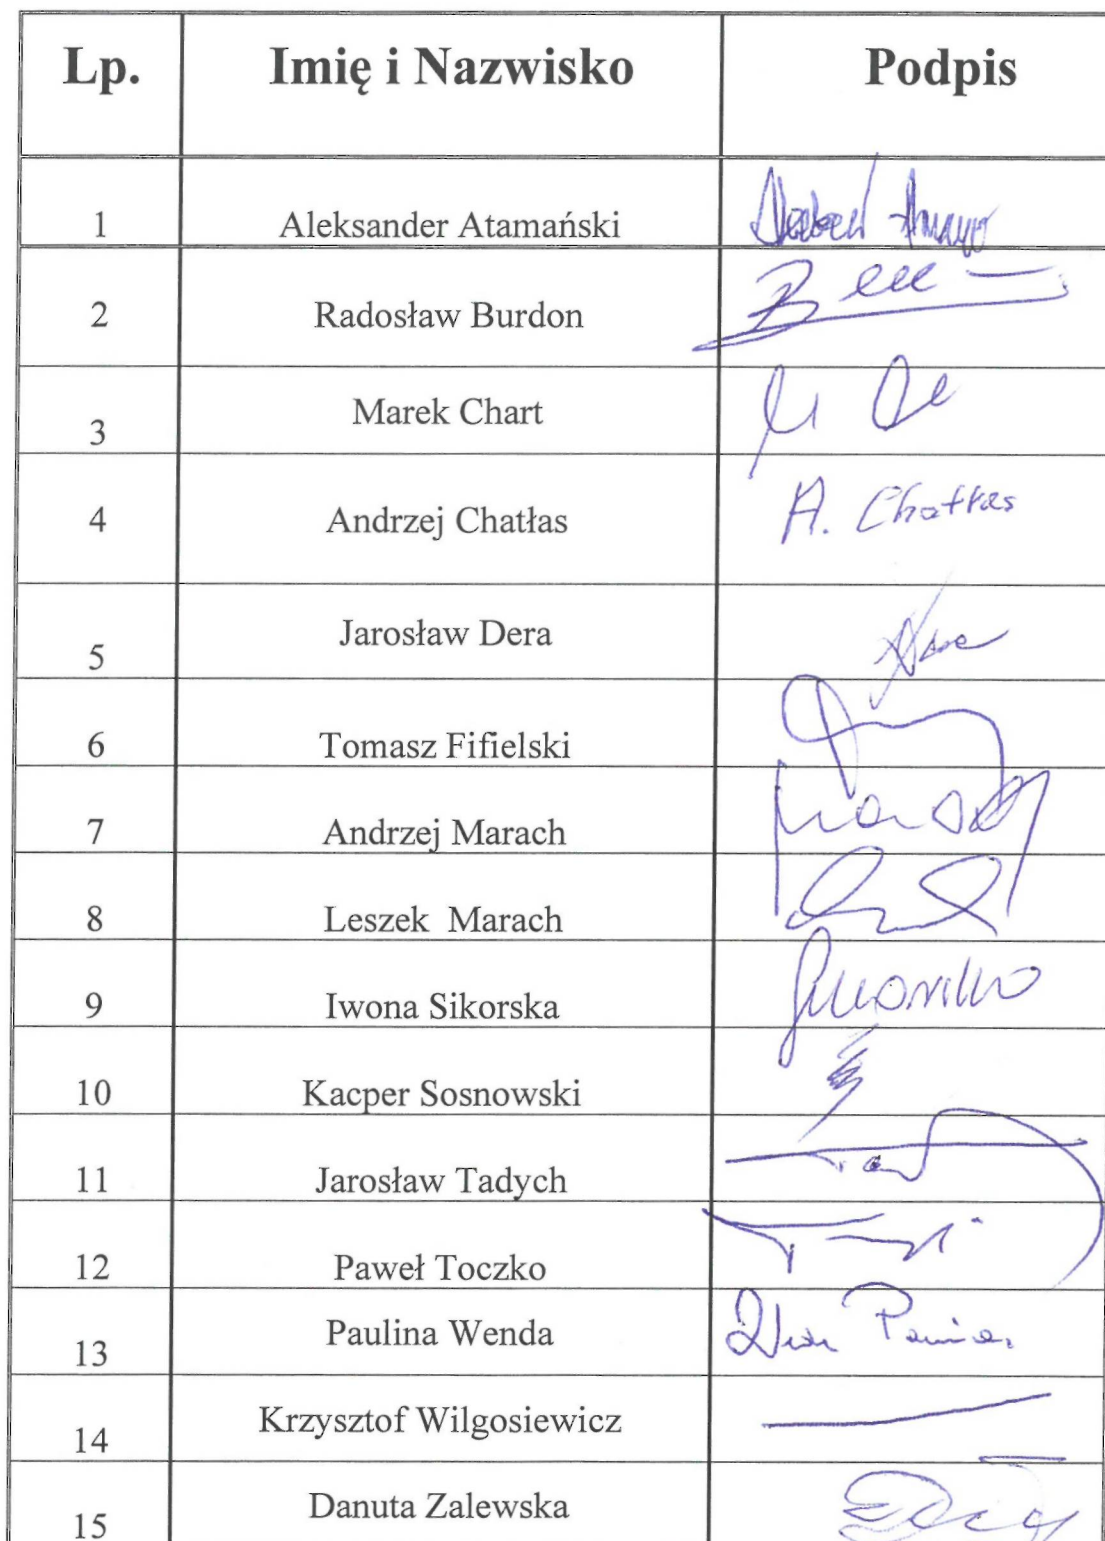 Lp. Imię i Nazwisko Podpis
1 Aleksander Atamański
2 Radosław Burdon
3 Marek Chart
4 Andrzej Chatłas A. Chatłas
5 Jarosław Dera
6 Tomasz Fifielski
7 Andrzej Marach
8 Leszek Marach
9 Iwona Sikorska
10 Kacper Sosnowski
11 Jarosław Tadych
12 Paweł Toczko
13 Paulina Wenda
14 Krzysztof Wilgosiewicz
15 Danuta Zalewska